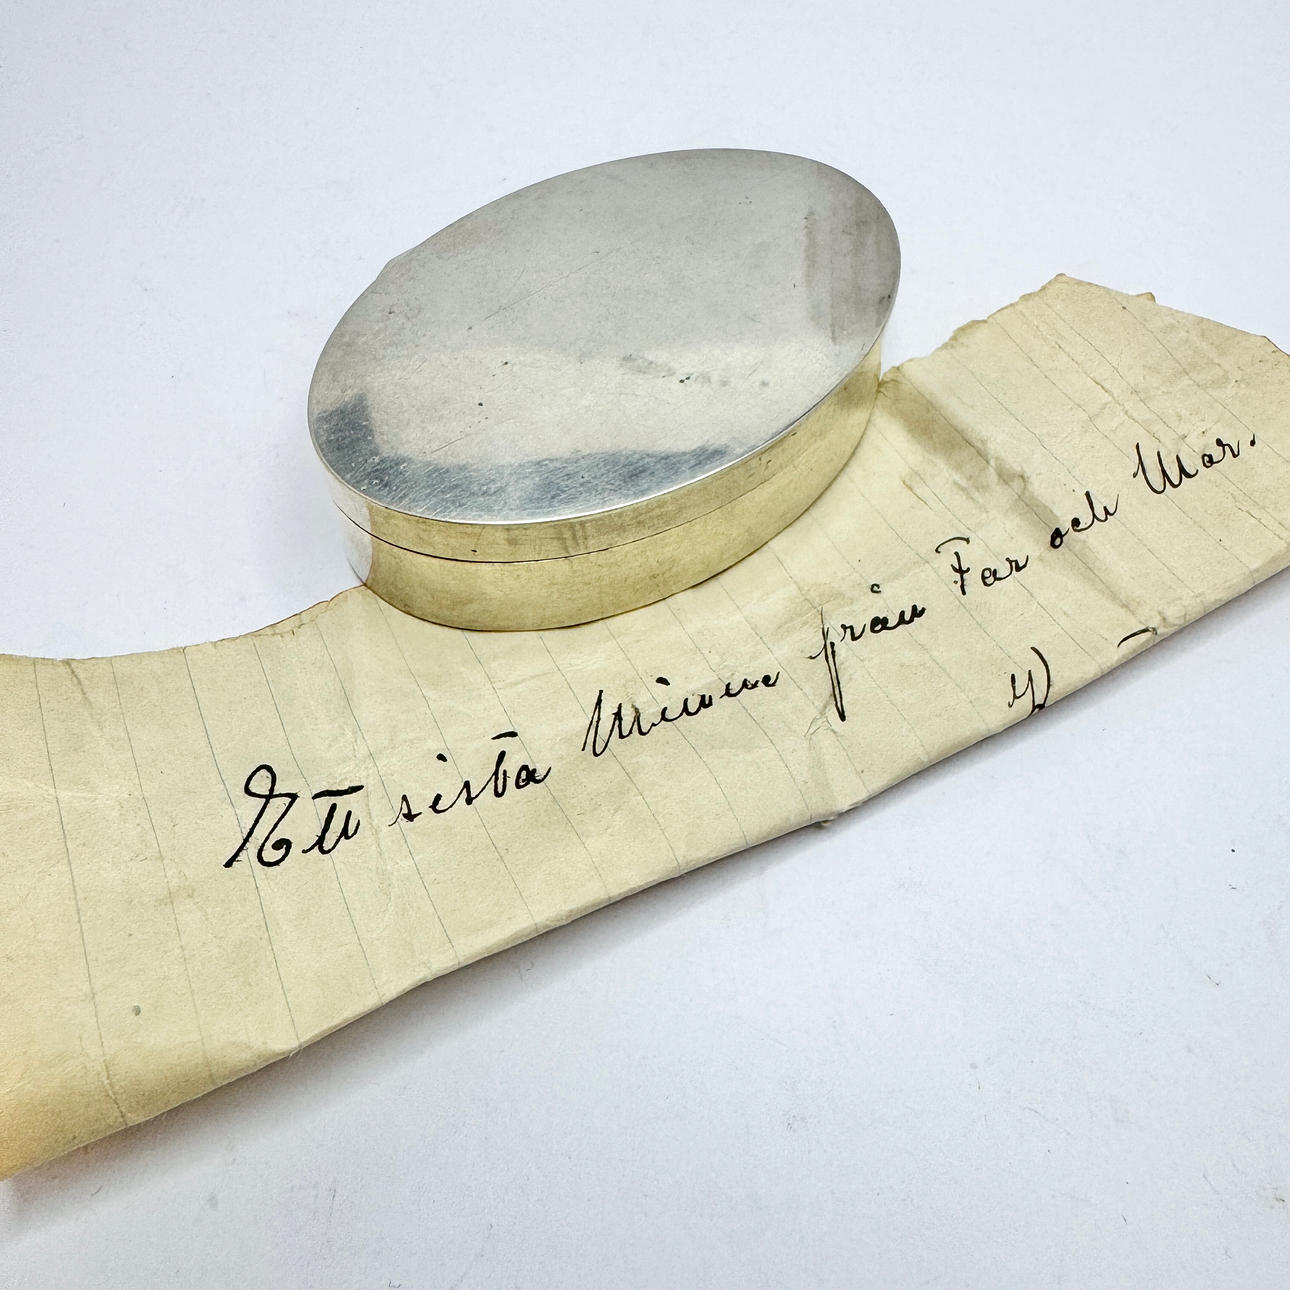 Ett sista Minne från Far och Mor.